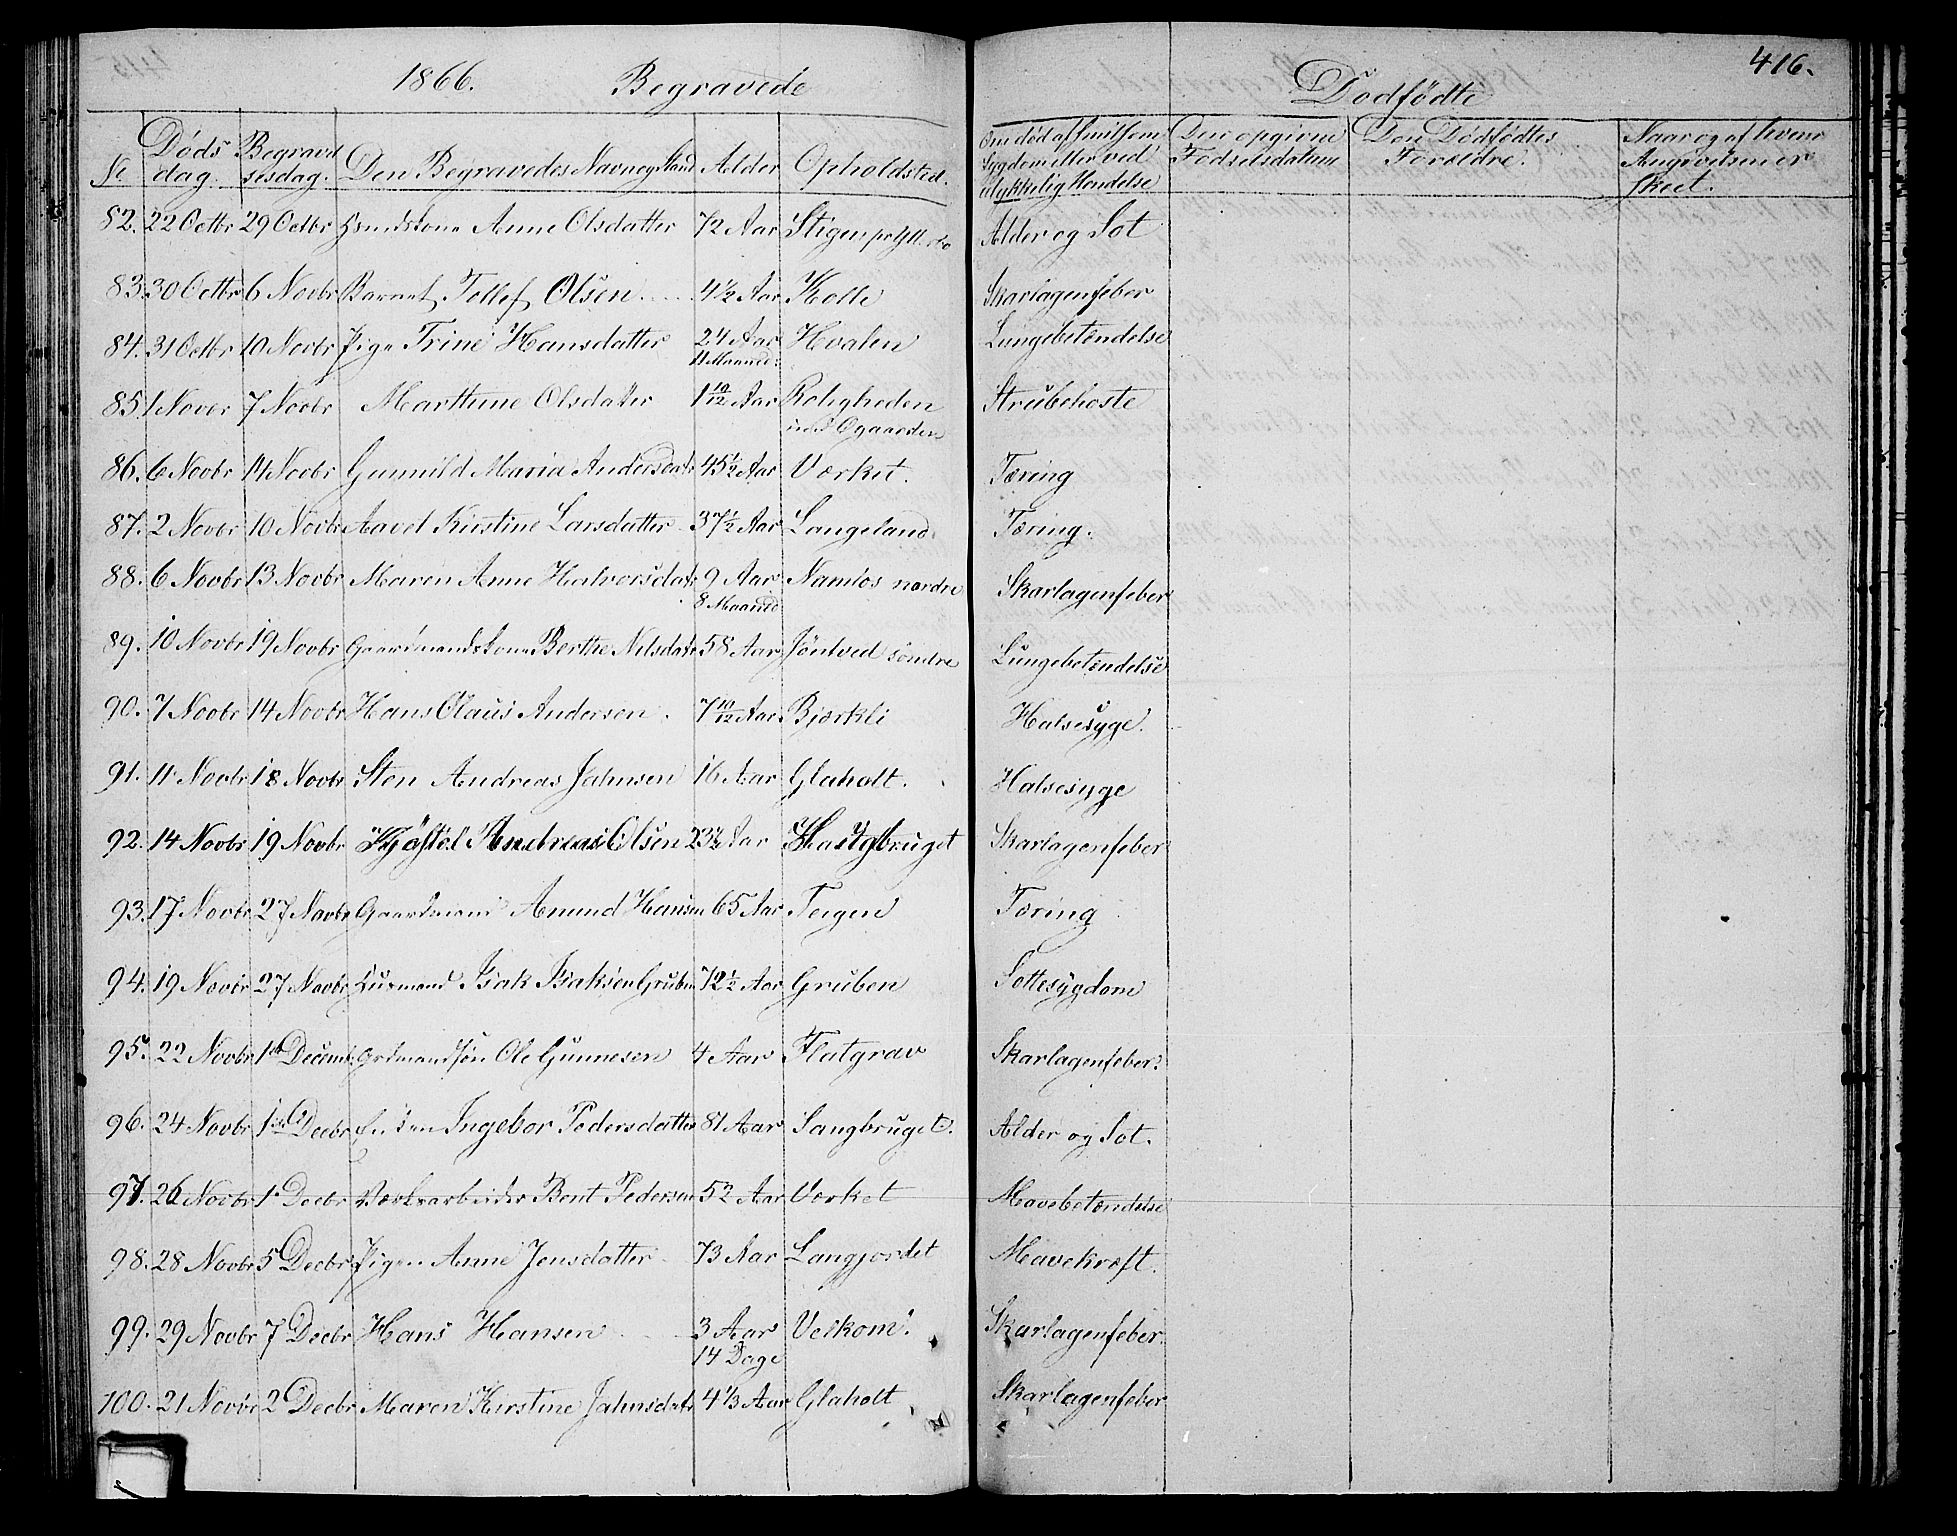 1866. Begravede
№ Døds dag. Begravelsesdag. Den Begravedes Navn og Stand Alder Opholdsted.
82. 22 Octbr 29 Octbr Anne Olsdatter 72 Aar Stigen
83. 30 Octbr 6 Novbr Barnet Tollef Olsen 4½ Aar Kolle
84. 31 Octbr 10 Novbr Pige Trine Hansdatter 24 Aar Hvalen
11 Maaned:
85. 1 Novbr 7 Novbr Marthine Olsdatter 1 10/12 Aar Roligheden
86. 6 Novbr 14 Novbr Gunnild Maria Andersdatr 45½ Aar Værket.
87. 2 Novbr 10 Novbr Aavet Kirstine Larsdatter 37½ Aar Langeland.
88. 6 Novbr 13 Novbr Maren Anne Halvorsdatr 9 Aar Namløs nordre
8 Maaned
89. 10 Novbr 19 Novbr Gaardmandskone Berthe Nilsdatr 58 Aar Jöntved söndre
90. 7 Novbr 14 Novbr Hans Olaus Andersen. 7 10/12 Aar Bjørkli
91. 11 Novbr 18 Novbr Sten Andreas Jahnsen 16 Aar Glaholt.
92. 14 Novbr 19 Novbr Kjøstel Andreas Olsen 23½ Aar Haugbruget
93. 17 Novbr 27 Novbr Gaardmand Amund Hansen 65 Aar Teigen
94. 19 Novbr 27 Novbr Huusmand Isak Isaksen Gruben 72½ Aar Gruben
95. 22 Novbr 1st Decemb Grdmandsøn Ole Gunnesen 4 Aar Flatgrav
96. 24 Novbr 1ste Decbr Ingebor Pedersdatter 81 Aar Sangbruget.
97. 26 Novbr 1st Decbr Værksarbeider Bent Pedersen 52 Aar Værket
98. 28 Novbr 5 Decbr Pigen Anne Jensdatter 73 Aar Langjordet
99. 29 Novbr 7 Decbr Hans Hansen 3 Aar Velkom.
14 Dage
100. 21 Novbr 2 Decbr Maren Kirstine Jahnsdatr 4⅓ Aar Glaholt
416.
Dödfödte
Om död af smitsom Sygdom eller ved ulykkelig Hendelse Den opgivne Fødselsdatum Den Dödfödtes Foreldre. Naar og af hvem Angivelsen er skeet.
Alder og Sot
Skarlagenfeber
Lungebetendelse
Strubehoste
Tæring
Tæring.
Skarlagenfeber
Lungebetendelse
Halsesyge.
Halsesyge
Skarlagenfeber
Tæring
Sottesygdom
Skarlagenfeber.
Alder og Sot.
Mavebetændelse
Mavekræft.
Skarlagenfeber.
Skarlagenfeber